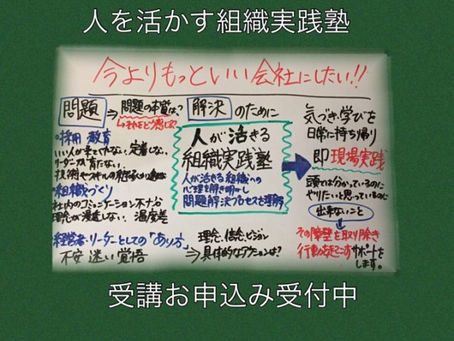 人を活かす組織実践塾
今よりもっといい会社にしたい!!
問題 ⇒ 問題の本質は? 解決 のために
→それをどう感じる?
・採用 教育
いい人が来てくれない、定着しない、
リーダーが育たない、
技術やスキルの継承が
・組織づくり
社内のコミュニケーション不十分
理念が浸透しない、温度差
経営者・リーダーとしての「あり方」
不安 迷い 覚悟
人が活きる
組織実践塾
人が活きる組織への
心理を解き明かし
問題解決プロセスを理解
理念、信念、ビジョン
⇒具体的なアクションは?
気づき・学びを
日常に持ち帰り
即 現場実践
頭では分かっているのに
やりたいと思っているのに
出来ないこと
その障壁を取り除き
行動を起こす サポートを
します。
受講お申込み受付中